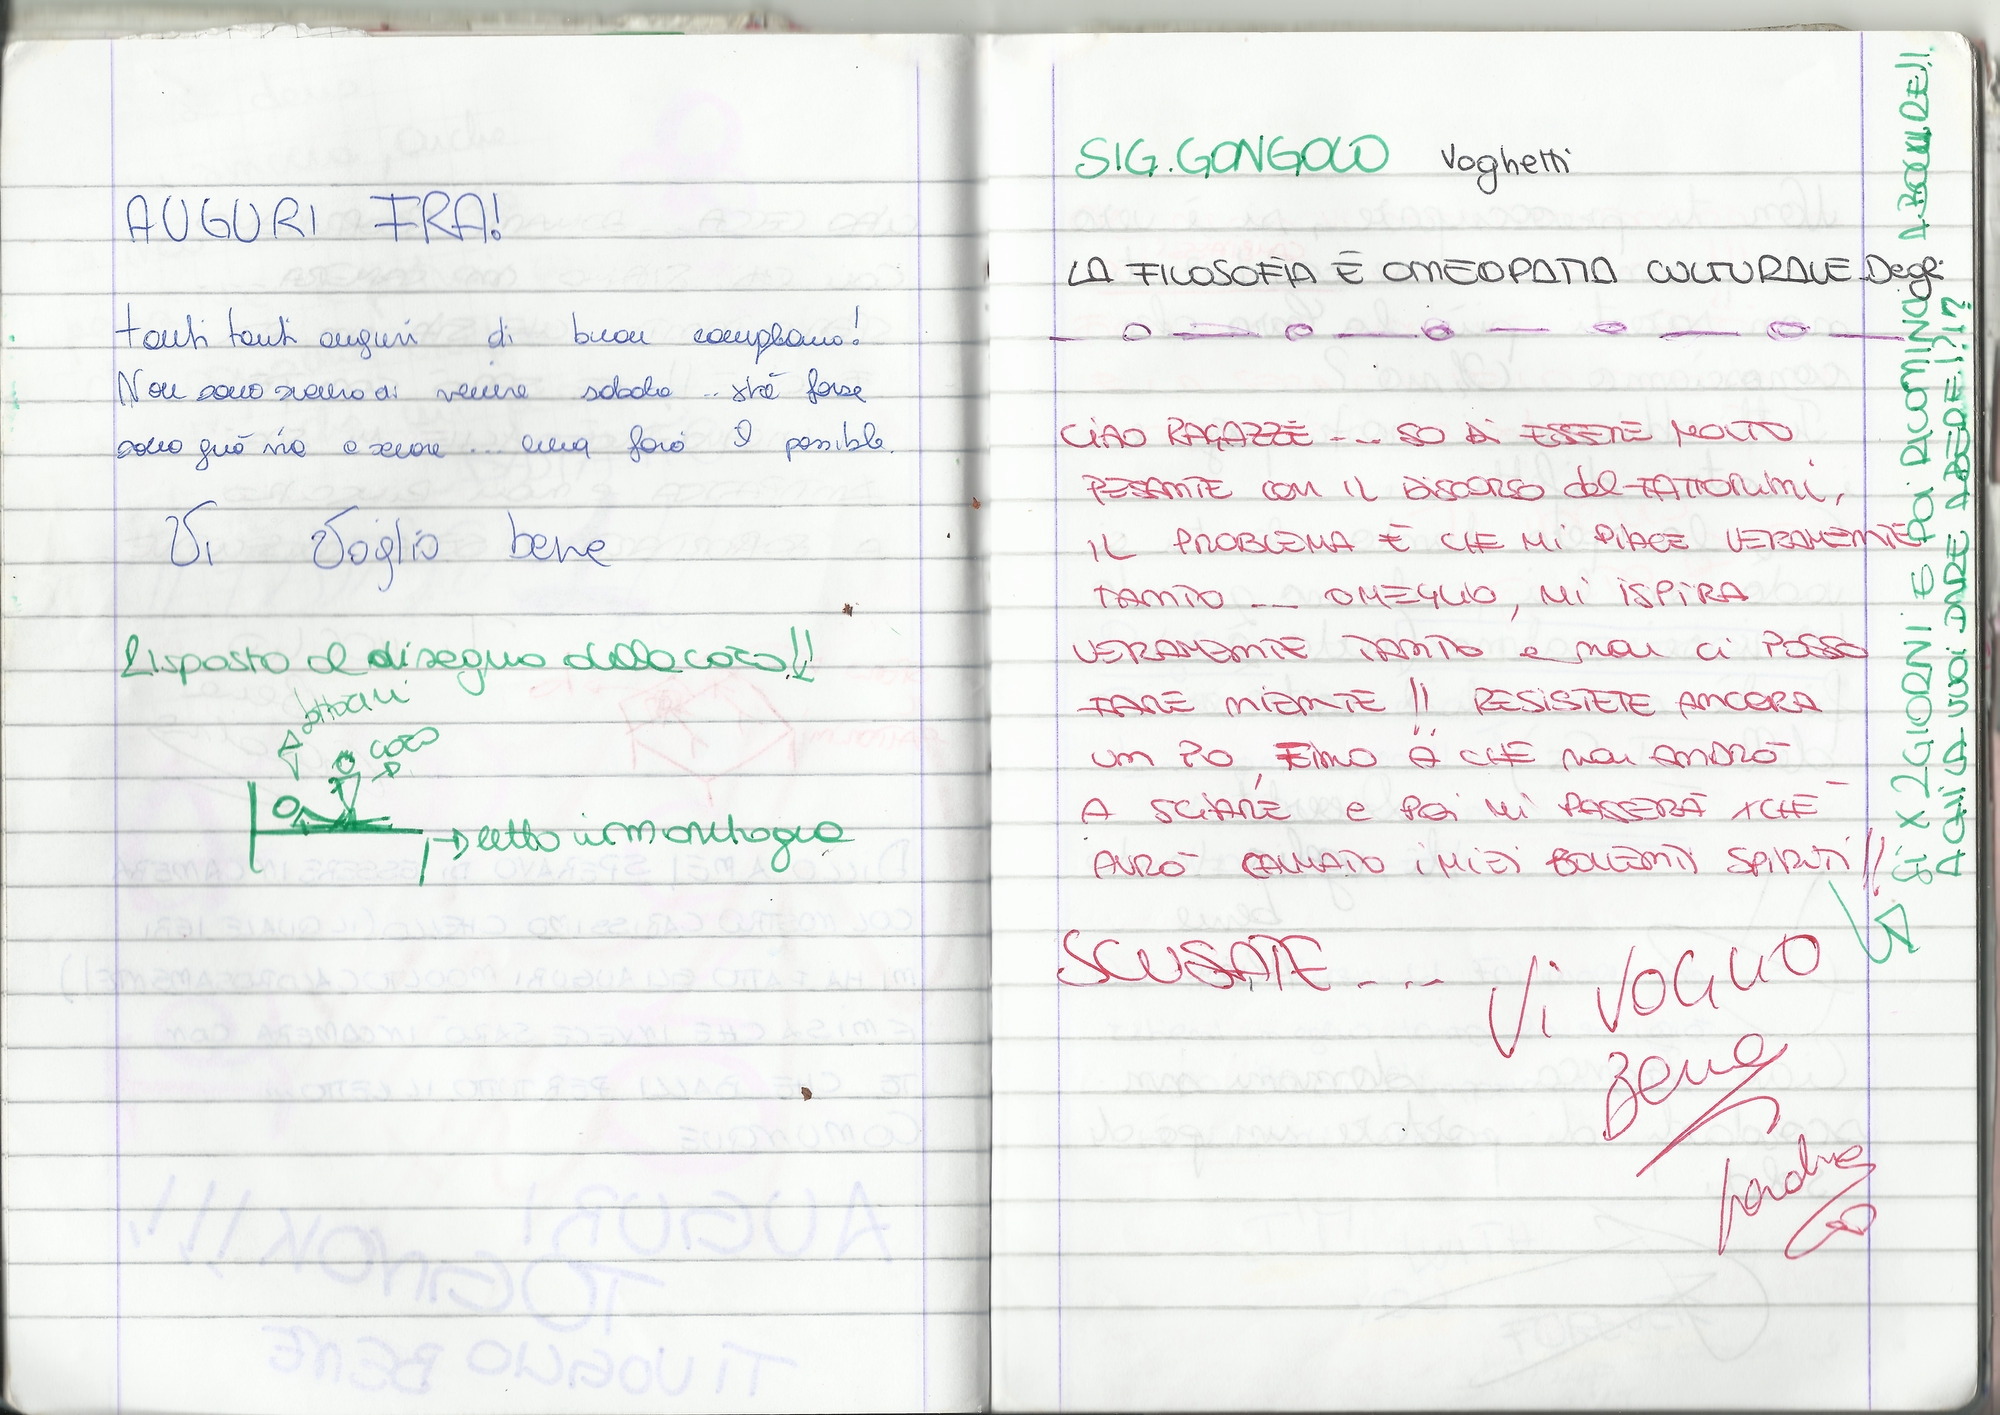 AUGURI FRA!
tanti tanti auguri di buon compleanno!
Non sono sicura di venire sabato .. xké forse
sono già via a sciare ... ma farò il possibile.
Vi Voglio bene
Risposta al disegno della coco!!
coco
→ letto in montagna
SIG. GONGOLO Voghetti
LA FILOSOFIA È OMEOPATIA CULTURALE. Degli
CIAO RAGAZZE --- SO DI ESSERE MOLTO
PESANTE CON IL DISCORSO del FATTORINI,
IL PROBLEMA È CHE MI PIACE VERAMENTE
TANTO --- O MEGLIO, MI ISPIRA
VERAMENTE TANTO e non ci POSSO
FARE NIENTE!! RESISTETE ANCORA
UN PO, FINO A CHE non ANDRÒ
A SCIARE e POI MI PASSERÀ XCHÈ
AVRÒ CALMATO I MIEI BOLLENTI SPIRITI!!
SCUSATE - - - Vi VOGLIO
Bene
SI X 2 GIORNI E POI RICOMINCI A
A CHI LA VUOI DARE A BERE!?!?